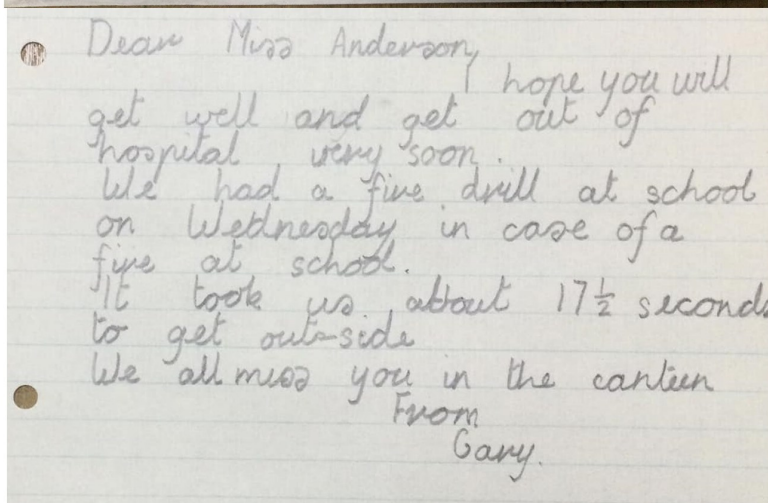 Dear Miss Anderson,
I hope you will
get well and get out of
hospital very soon.
We had a fire drill at school
on Wednesday in case of a
fire at school.
It took us about 17½ seconds
to get out-side
We all miss you in the canteen
From
Gary.